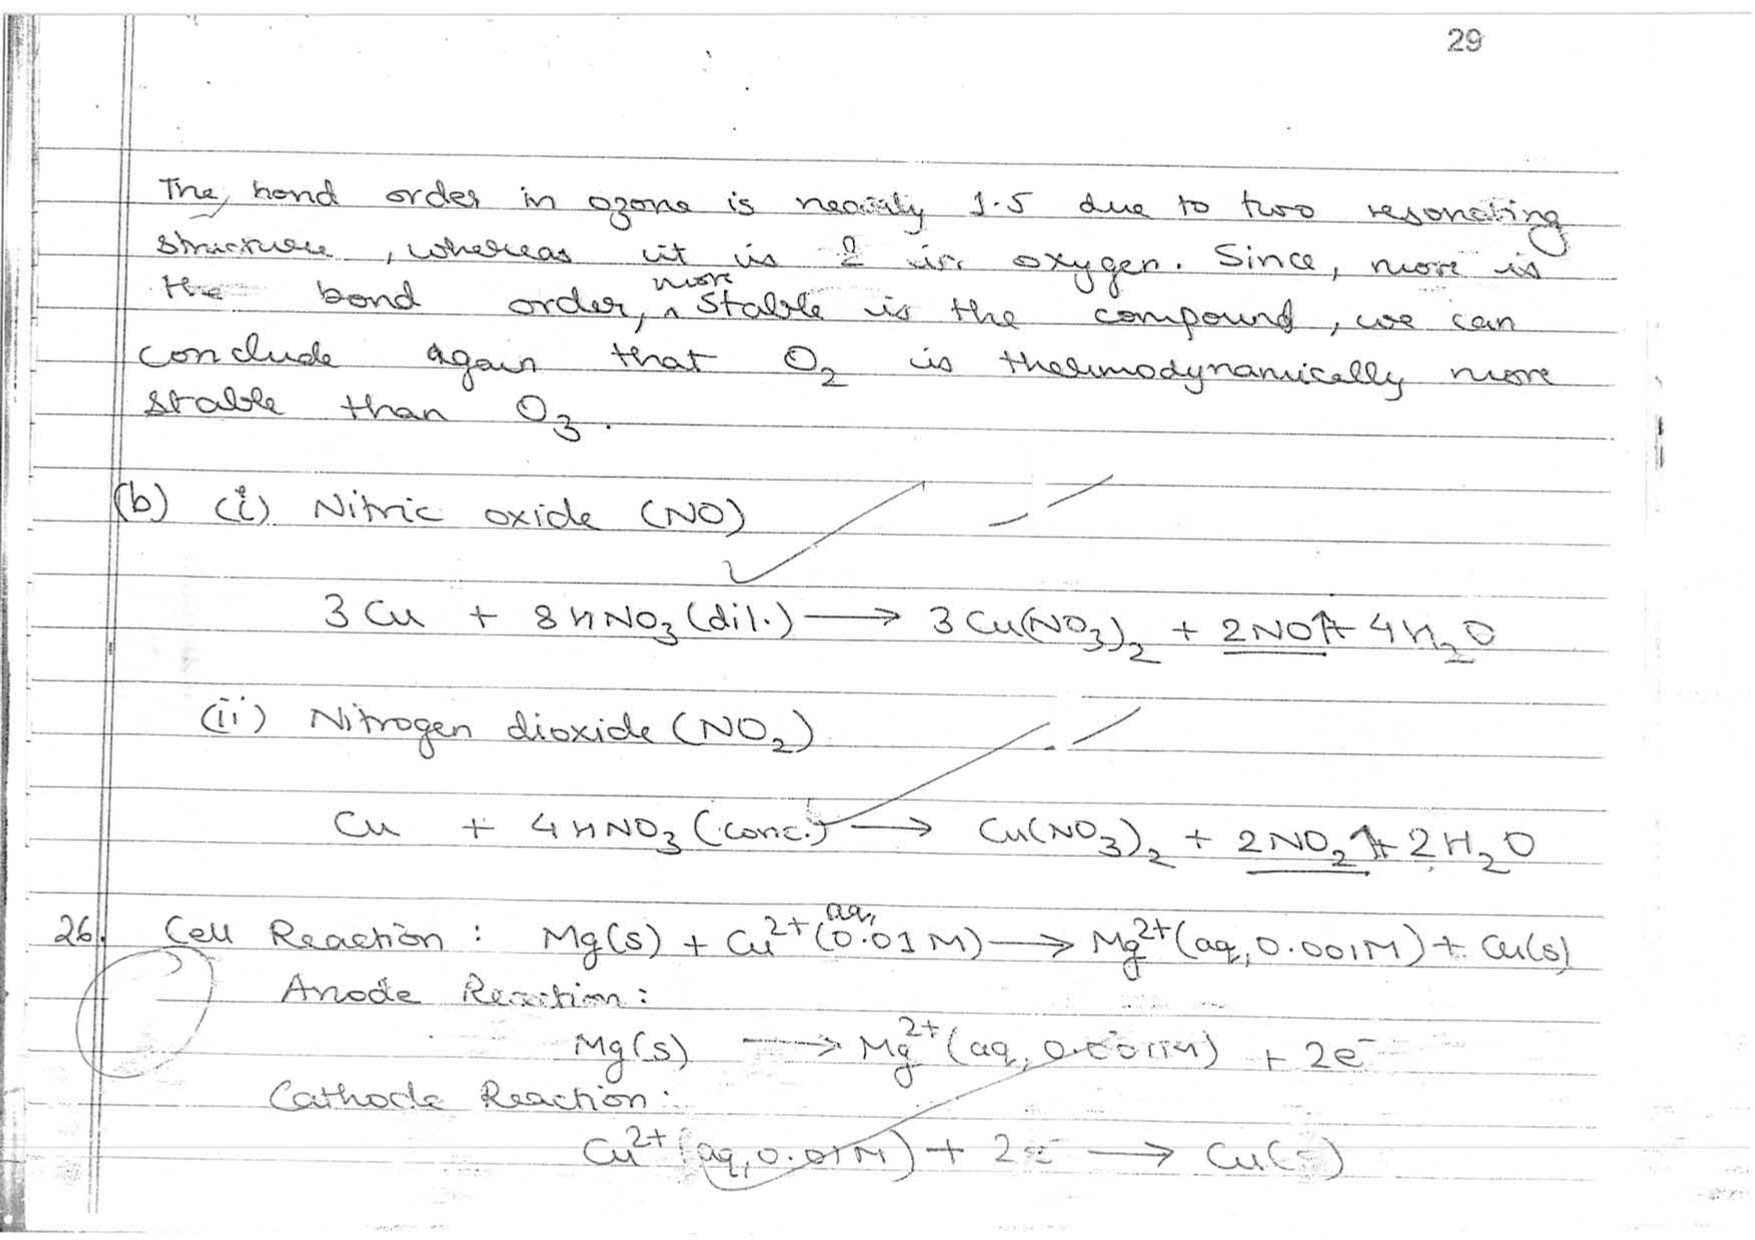 29
The bond order in ozone is nearly 1.5 due to two resonating
structure, whereas it is 2 in oxygen. Since, more is
the bond order, more stable is the compound, we can
conclude again that O₂ is thermodynamically more
stable than O₃.
(b) (i) Nitric oxide (NO)
3 Cu + 8 HNO₃ (dil.) ⟶ 3 Cu(NO₃)₂ + 2NO↑ + 4H₂O
(ii) Nitrogen dioxide (NO₂)
Cu + 4 HNO₃ (conc.) ⟶ Cu(NO₃)₂ + 2NO₂↑ + 2H₂O
26. Cell Reaction : Mg(s) + Cu²⁺ (aq, 0.01M) ⟶ Mg²⁺ (aq, 0.001M) + Cu(s)
Anode Reaction :
Mg(s) ⟶ Mg²⁺ (aq, 0.001M) + 2e⁻
Cathode Reaction :
Cu²⁺ (aq, 0.01M) + 2e⁻ ⟶ Cu(s)